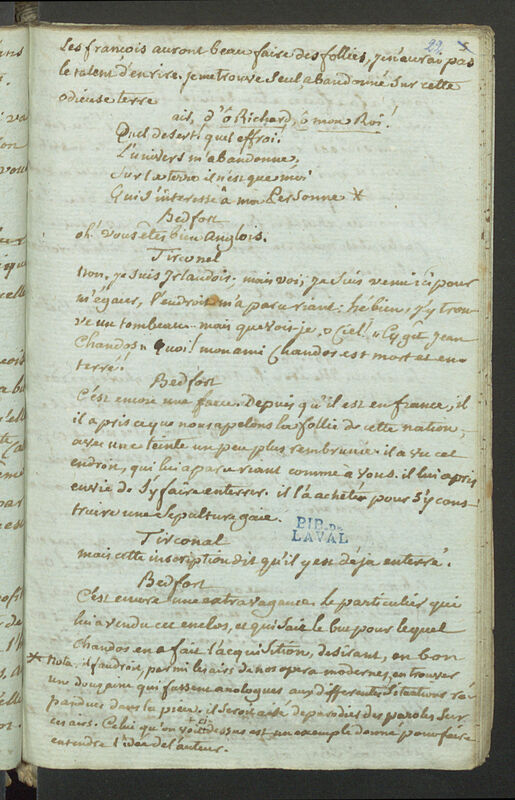 29.
Les françois auront beau faire des follies, je n'aurai pas
le talent d'en rire. je me trouve seul, abandonné sur cette
odieuse terre
air, d'ô Richard, ô mon Roi!
Quel desert! quel effroi!
L'univers m'abandonne,
Sur la terre il n'est que moi
Qui s'interesse à ma Personne *
Bedfort
oh! vous etes bien Anglois.
Tirconel
Non. je suis Irlandois. mais voi, je suis venu ici pour
m'égaier, l'endroit m'a paru riant: hé bien, j'y trou
ve un tombeau. mais que vois-je, o Ciel! "Cy gît Jean
Chandos" Quoi! mon ami Chandos est mort et en
terré!
Bedfort
C'est encore une farce. Depuis qu'il est en france, il
il a pris ce que nous apelons la follie de cette nation,
avec une teinte un peu plus rembrunie. il a vu cet
endroit, qui lui a paru riant comme à vous. il lui a pris
envie de s'y faire enterrer. il l'a acheté pour s'y cons
truire une sepulture gaie.
BIB. DE
LAVAL
Tirconal
mais cette inscription dit qu'il y est déja enterré.
Bedfort
C'est encore une extravagance. le particulier qui
lui a vendu cet enclos, et qui sait le but pour lequel
Chandos en a fait l'acquisition, desirant, en bon
* Nota. il faudroit, parmi les airs de nos opera modernes, en trouver
une dougaine qui fussent analogues aux differentes situations ré
pandues dans la piece. il seroit aisé de parodier des paroles sur
ces airs. Celui qu'on voit ci dessus est un exemple donné pour faire
entendre l'idée de l'auteur.